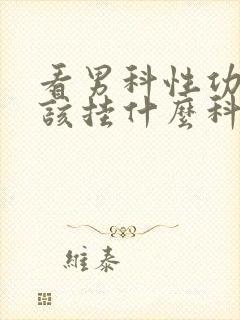 看男科性功
該挂什麼科
維泰